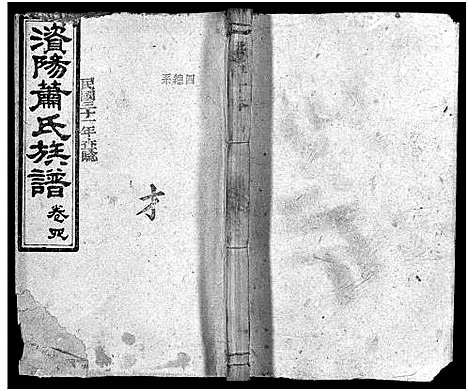 濱陽蕭氏族譜
卷四
民國三十一年
四總系
才